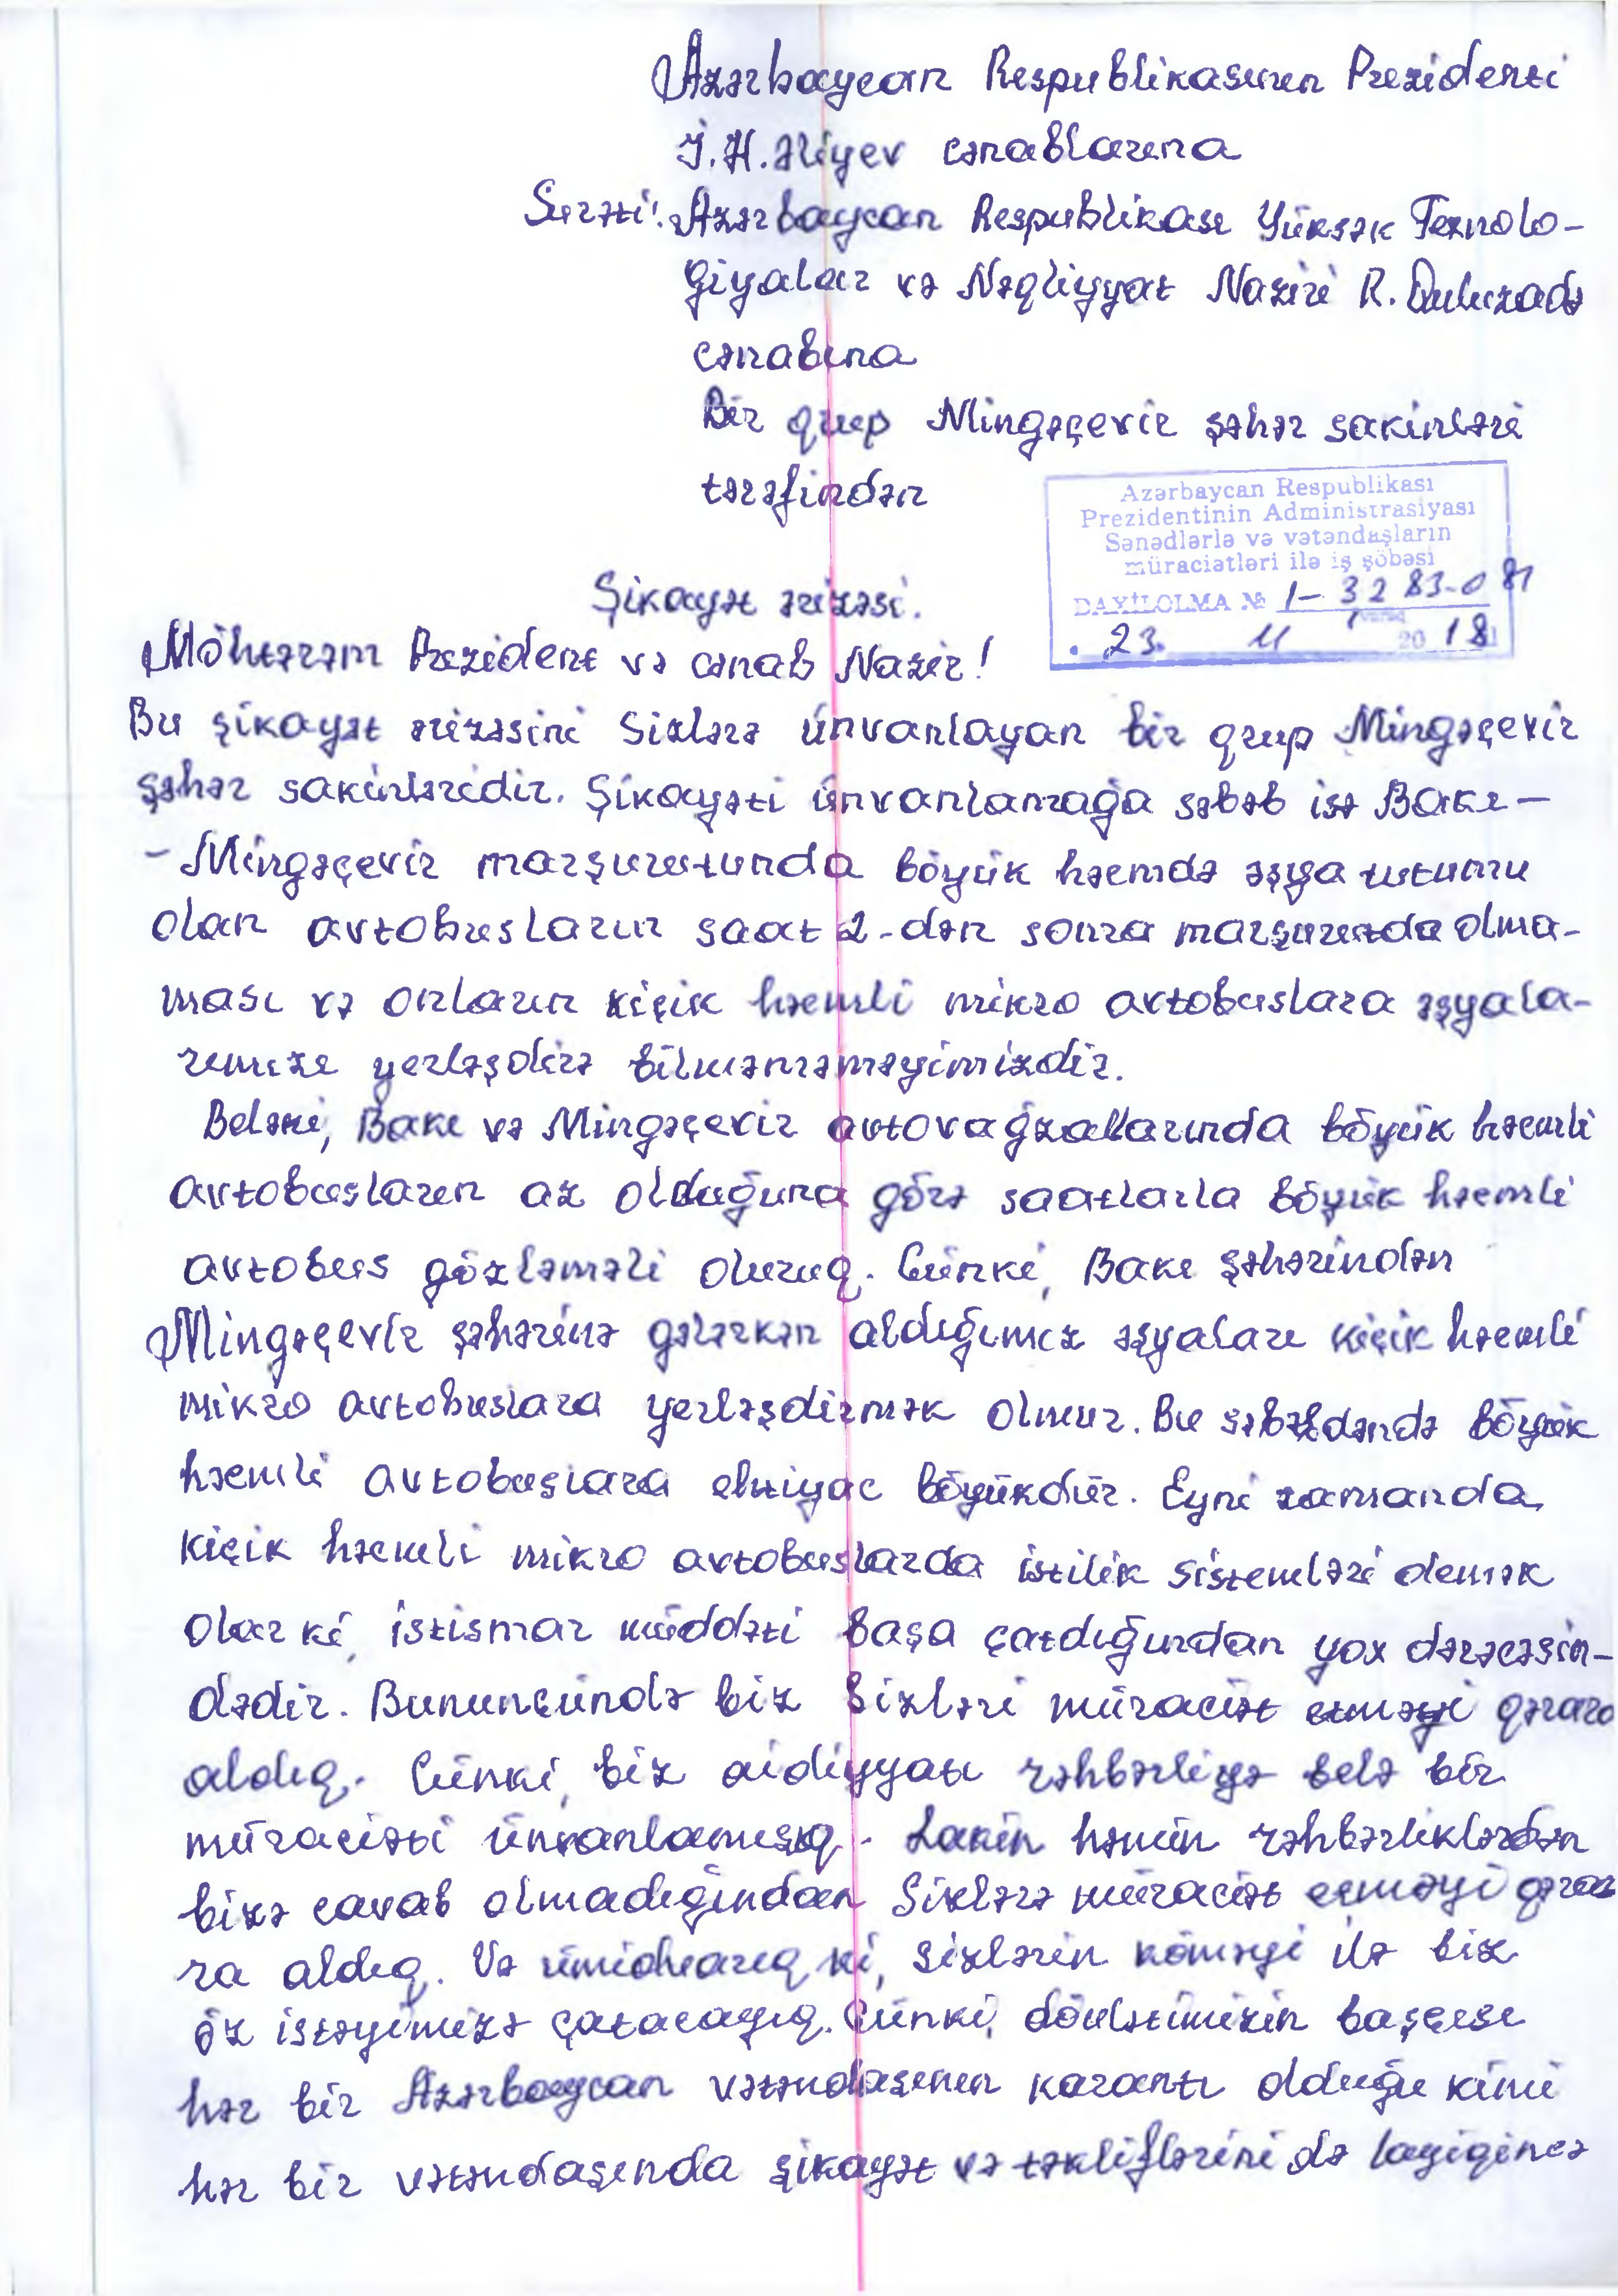 Azərbaycan Respublikasının Prezidenti
İ.H.Əliyev cənablarına
Surəti: Azərbaycan Respublikası Yüksək Texnolo-
giyalar və Nəqliyyat Naziri R. Quluzadə
cənabına
Bir qrup Mingəçevir şəhər sakinləri
tərəfindən
Azərbaycan Respublikası
Prezidentinin Administrasiyası
Sənədlərlə və vətəndaşların
müraciətləri ilə iş şöbəsi
DAXİLOLMA № 1-3283-081
23. 11 2018
Şikayət ərizəsi.
Möhtərəm Prezident və cənab Nazir!
Bu şikayət ərizəsini Sizlərə ünvanlayan bir qrup Mingəçevir
şəhər sakinləridir. Şikayəti ünvanlamağa səbəb isə Bakı-
- Mingəçevir marşurutunda böyük həcmdə əşya tutumu
olan avtobusların saat 2-dən sonra marşurutda olma-
ması və onların kiçik həcmli mikro avtobuslara əşyala-
rımızı yerləşdirə bilməməməyimizdir.
Beləki, Bakı və Mingəçevir avtovağzallarında böyük həcmli
avtobusların az olduğuna görə saatlarla böyük həcmli
avtobus gözləməli oluruq. Çünki, Bakı şəhərindən
Mingəçevir şəhərinə gələrkən aldığımız əşyaları kiçik həcmli
mikro avtobuslara yerləşdirmək olmur. Bu səbəbdəndə böyük
həcmli avtobuslara ehtiyac böyükdür. Eyni zamanda,
kiçik həcmli mikro avtobuslarda istilik sistemləri demək
olar ki, istismar müddəti başa çatdığından yox dərəcəsin-
dədir. Bununçündə biz Sizləri müraciət etməyi qərara
aldıq. Çünki, biz aidiyyatı rəhbərliyə belə bir
müraciəti ünvanlamışıq. Lakin həmin rəhbərliklərdən
bizə cavab olmadığından Sizlərə müraciət etməyi qəra
ra aldıq. Və ümidvarıq ki, Sizlərin köməyi ilə biz
öz istəyimizə çatacayıq. Çünki, dövlətimizin başçısı
hər bir Azərbaycan vətəndaşının karantı olduğu kimi
hər bir vətəndaşında şikayət və təkliflərini də layiqincə